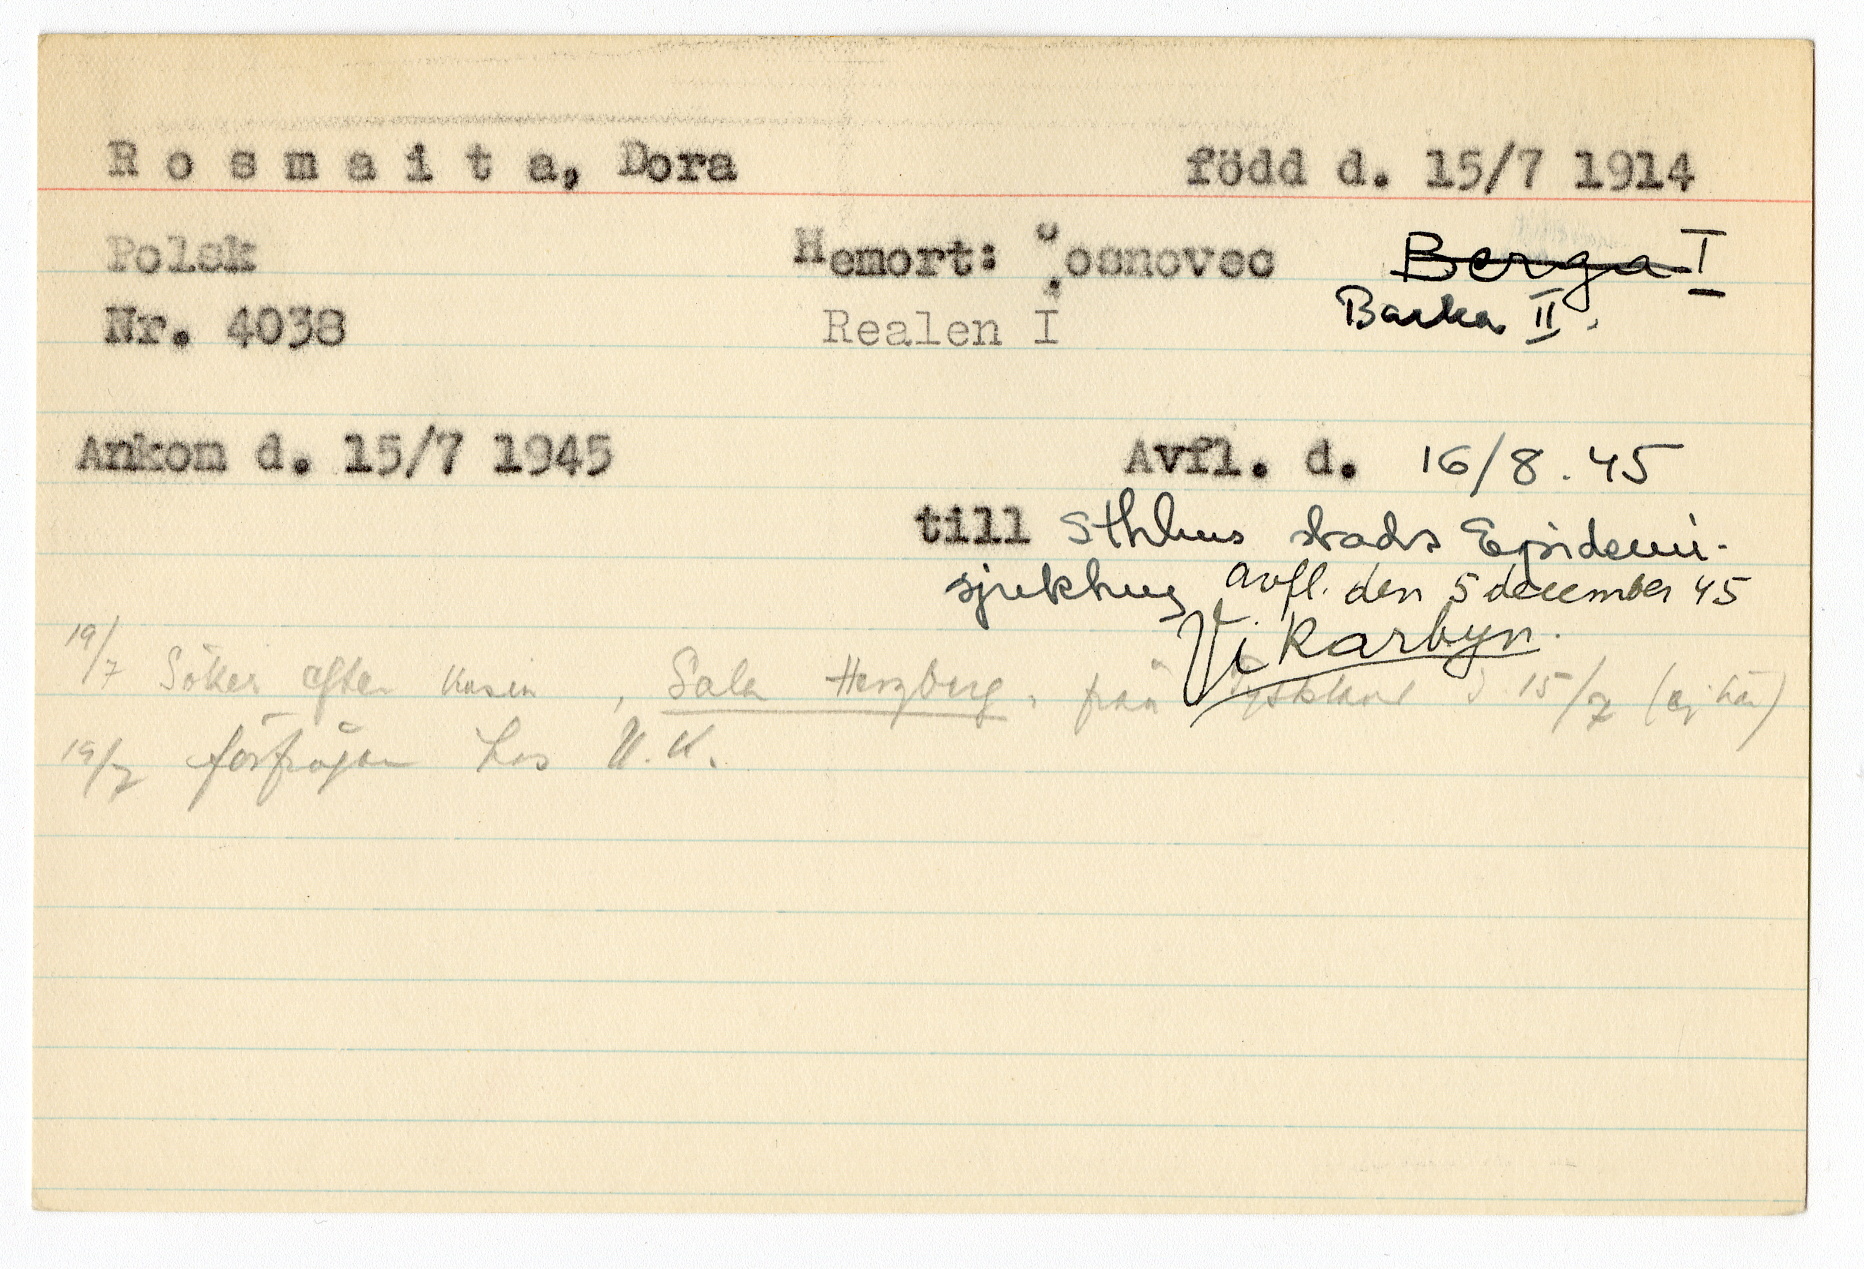 Rosmaita, Dora född d. 15/7 1914
Polsk Hemort: Sosnovec Berga I
Nr. 4038 Realen I Barka II.
Ankom d. 15/7 1945 Avfl. d. 16/8.45
till Sthlms stads Epidemi-
sjukhus avfl. den 5 december 45
Vikarbyn.
19/7 Söker efter kusin, Sala Herzberg, från Tyskland d. 15/7 (ej här)
19/7 förfrågan hos U.K.